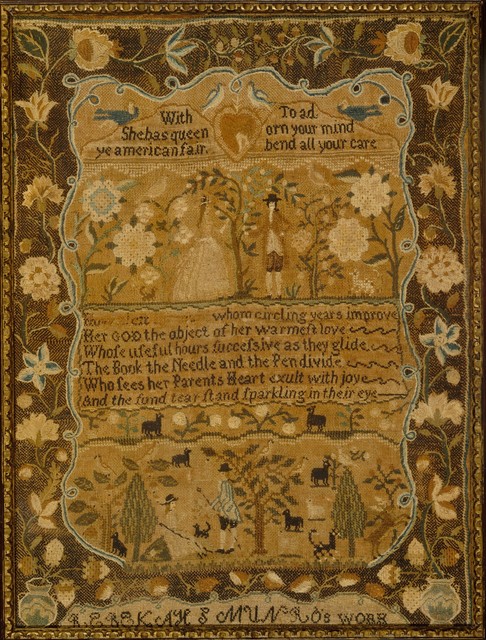 With To ad
Shebas queen orn your mind
ye american fair. bend all your care
whom circling years improve
Her GOD the object of her warmest love
Whose useful hours succefsive as they glide
The Book the Needle and the Pen divide
Who sees her Parents Heart exult with joye
and the fund tear stand sparkling in their eye
REBEKAH S MUNRO's WORK